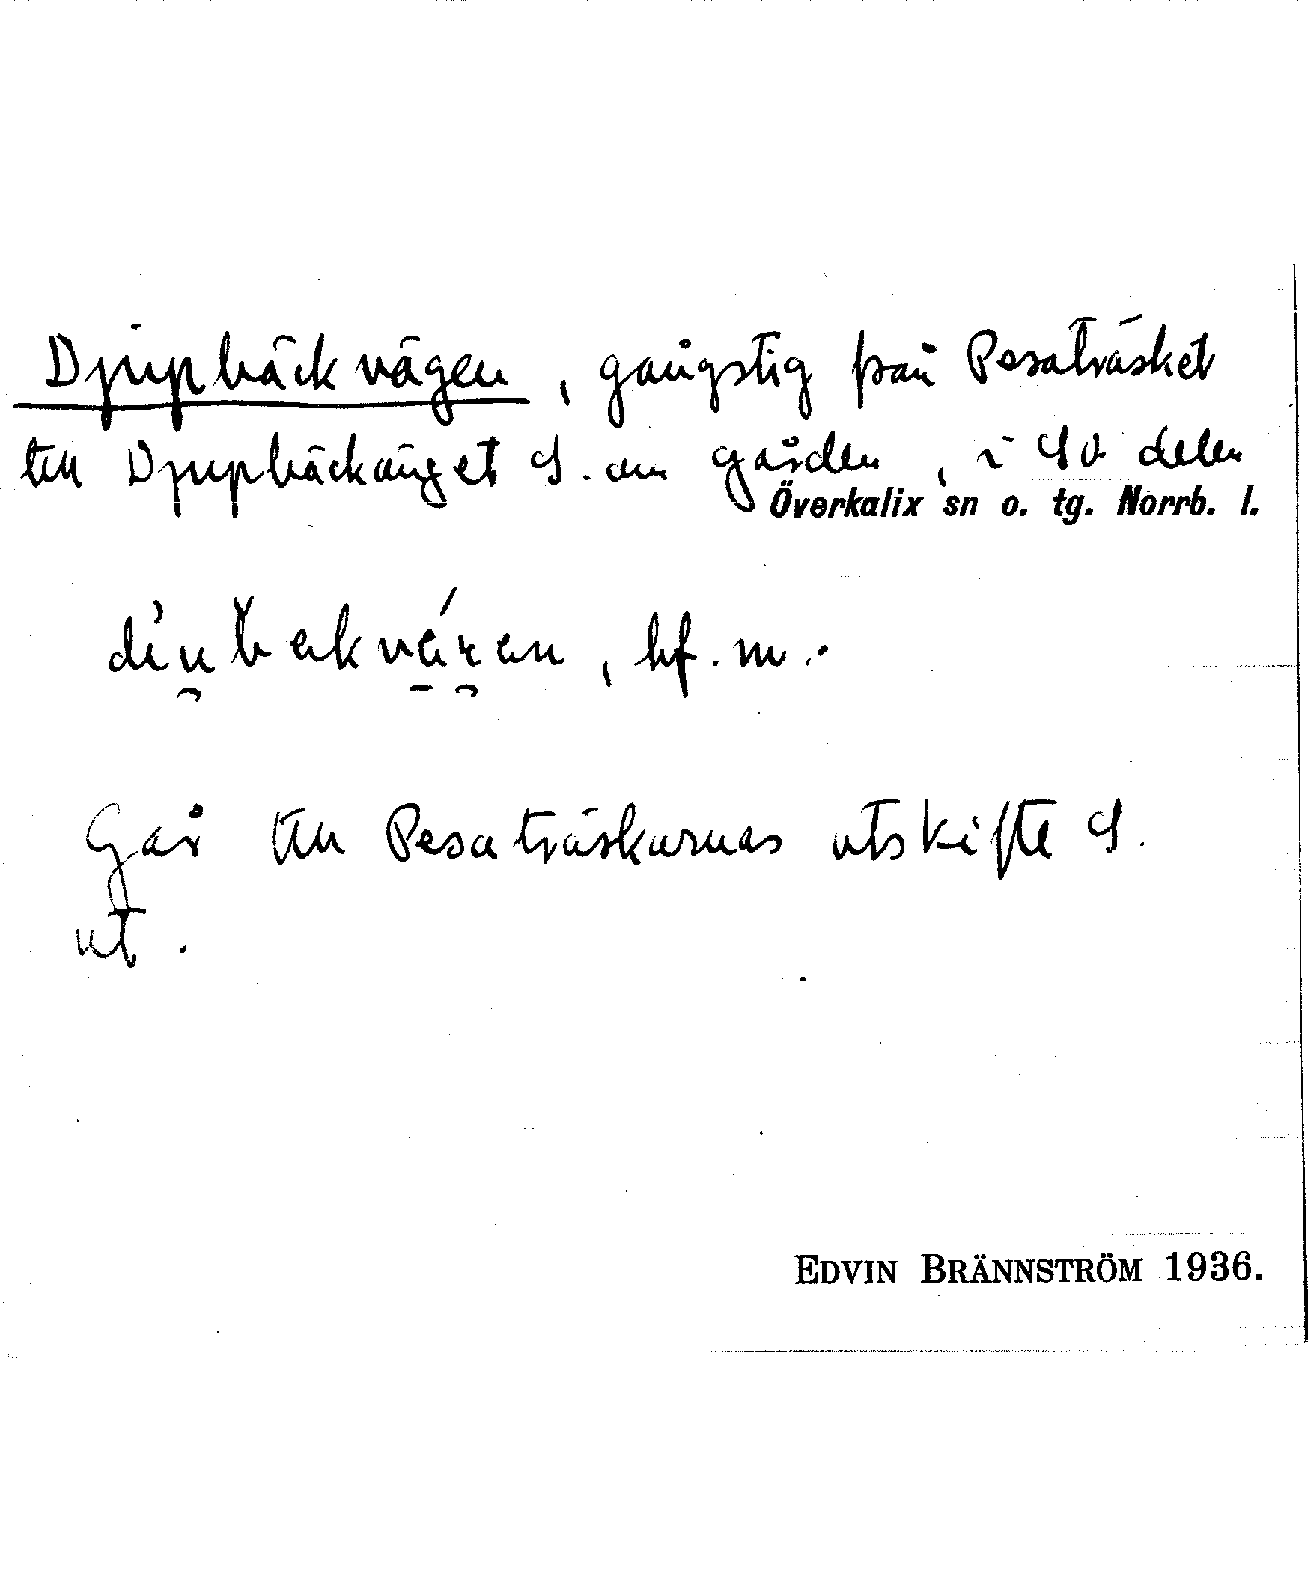 Djupbäckvägen, gångstig från Pesaträsket
till Djupbäckänget S. om gården, i SV delen
Överkalix sn o. tg. Norrb. l.
bf. m.
Går till Pesaträskarnas utskifte S.
ut.
EDVIN BRÄNNSTRÖM 1936.